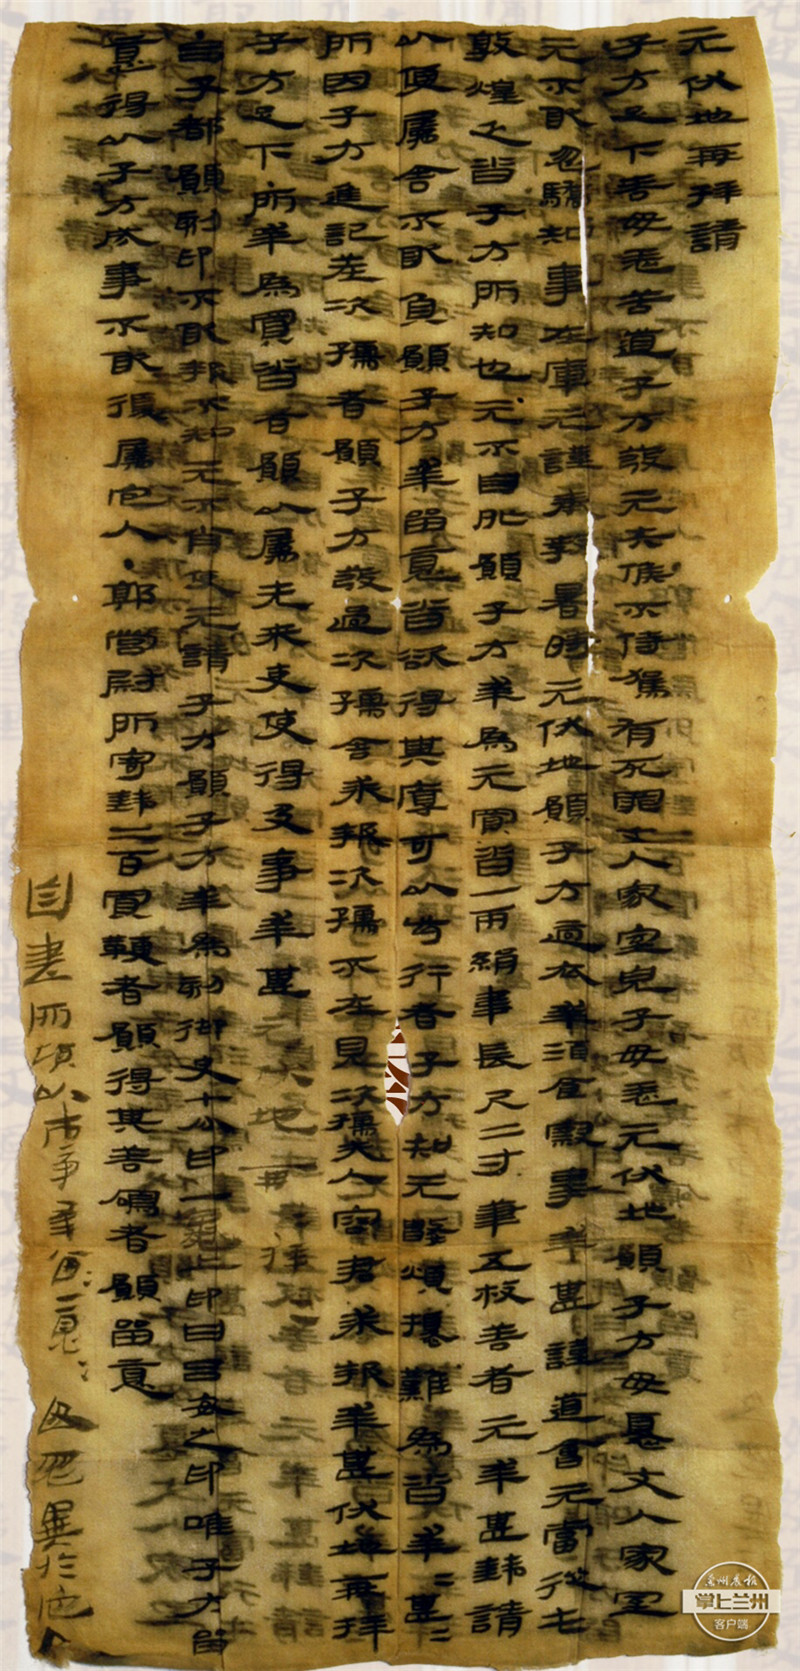 元伏地再拜請
子方足下善毋恙苦道子方發元失候不侍駕有死罪丈人家室兒子毋恙元伏地願子方毋憂丈人家室
元不敢忽驕知事在庫元謹奉教暑時元伏地願子方適衣幸酒食察事幸甚謹道會元當從屯
敦煌乏沓子方所知也元不自外願子方幸為元買沓一兩絹韋長尺二寸筆五枚善者元幸甚錢請
以便屬舍不敢負願子方幸留意沓欲得其厚可以步行者子方知元數煩擾難為沓幸=甚=
所因子方進記差次孺者願子方發過次孺舍求報次孺不在見次孺夫人容君求報幸甚伏地再拜
子方足下所幸為買沓者願以屬先來吏使得及事幸甚元伏地再拜
呂子都願刻印不敢報不知元不肖使元請子方願子方幸為刻御史七分印一龜上印曰呂安之印唯子方留
意得以子方成事不敢復屬它人・郭營尉所寄錢二百買鞭者願得其善鳴者願留意
自書所願以市事幸留=意=毋忽異於它人
掌上兰州
客户端